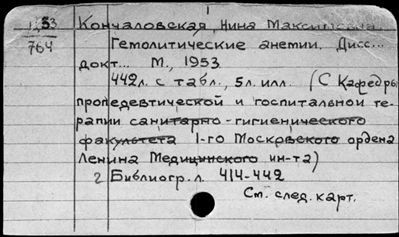 53
764
Кончаловская, Нина Максимовна
Гемолитические анемии. Дисс...
докт... М., 1953
442л. с табл., 5л. илл. (С Кафедры
пропедевтической и госпитальной те-
рапии санитарно-гигиенического
факультета 1-го Московского ордена
Ленина Медицинского ин-та)
2 Библиогр. л. 414-442
См. след. карт.